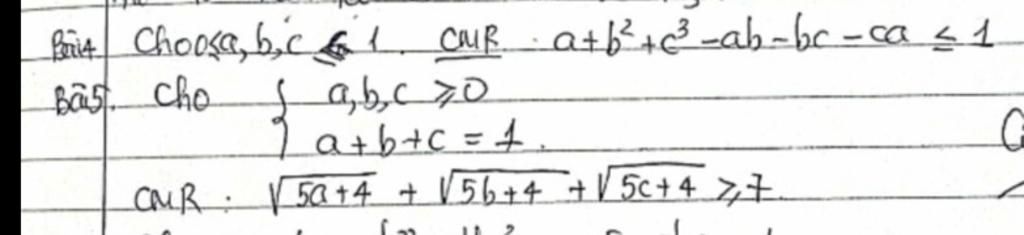 Bài 4 Cho 0≤a,b,c ≤ 1. CMR a+b²+c³-ab-bc-ca ≤ 1
Bài 5. Cho { a,b,c ≥0
a+b+c = 1.
CMR: √5a+4 + √5b+4 + √5c+4 ≥7